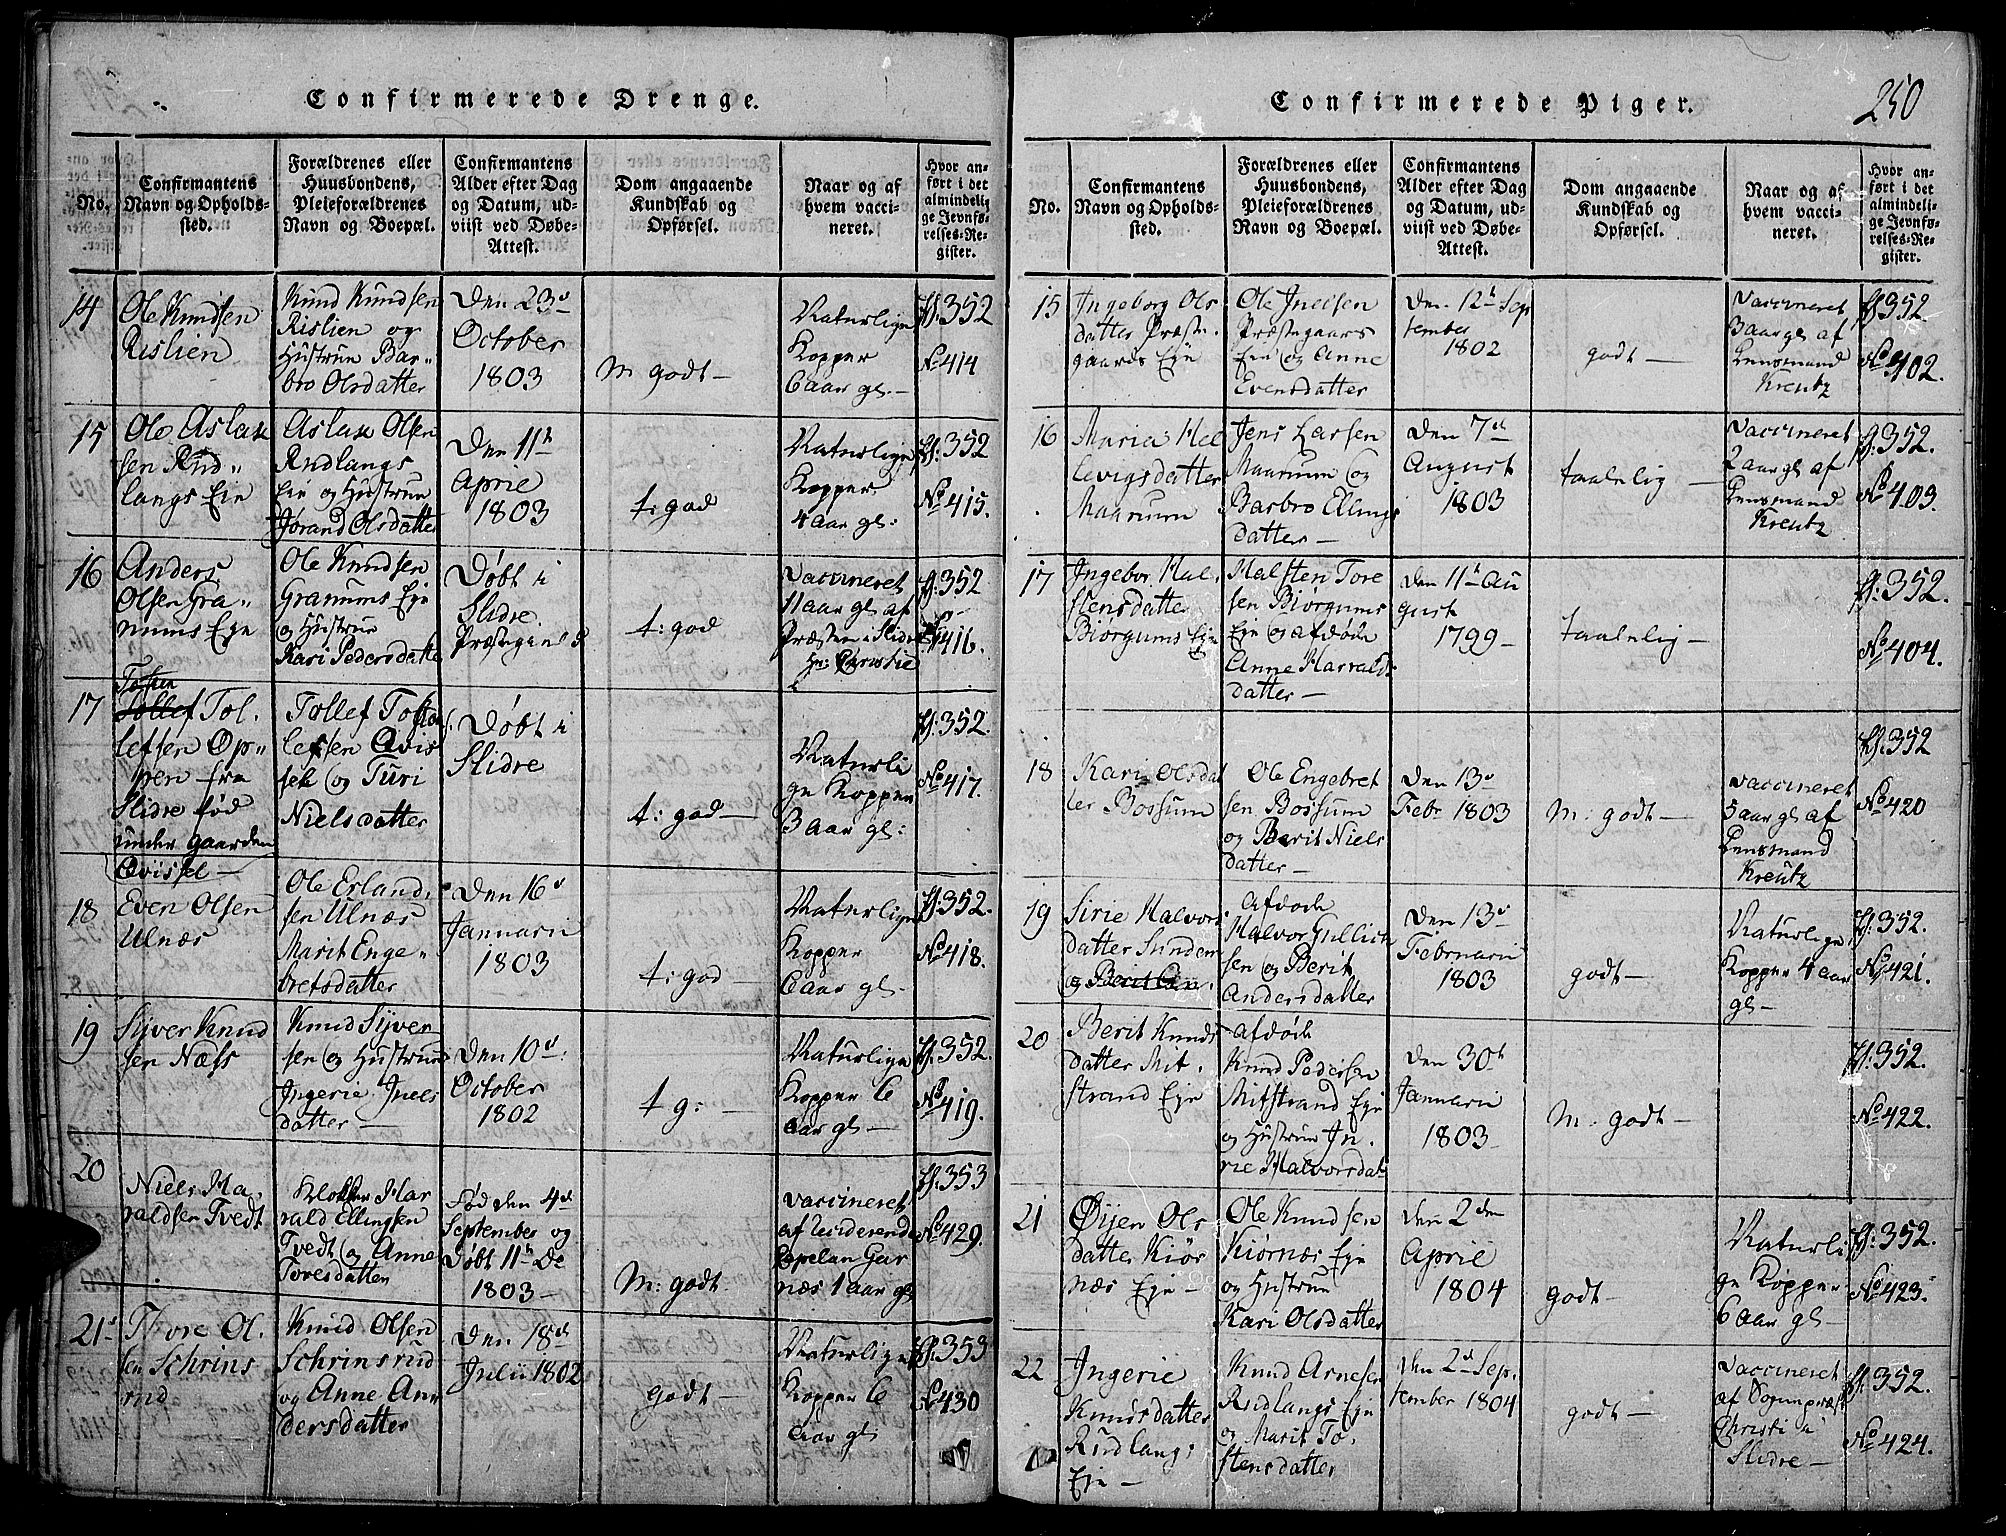 Confirmerede Drenge.
No.
Confirmantens
Navn og Opholds-
sted.
Forældrenes eller
Huusbondens,
Pleieforældrenes
Navn og Boepæl.
Confirmantens
Alder efter Dag
og Datum, ud-
viist ved Døbe-
Attest.
Dom angaaende
Kundskab og
Opførsel.
Naar og af
hvem vacci-
neret.
Hvor an-
ført i det
almindeli-
ge Jevnfø-
relses-Re-
gister.
14
Ole Knudsen
Rislien
Knud Knudsen
Rislien og
Hustrue Bar-
bro Olsdatter
Den 23d
October
1803
M godt -
Naturlige
Kopper
6 aar gl. -
352
No 414
15
Ole Aslak
sen Rud-
langs Eje
Aslak Olsen
Rudlangs
Eie og Hustrue
Jørand Olsdatter
Den 11th
April
1803
t: god
Naturlige
Kopper
4 aar gl:
352
No 415.
16
Anders
Olsen Gra-
nums Eje
Ole Knudsen
Granums Eje
og Hustrue
Kari Pedersdatte
Døbt i
Slidre
Præstegield
t: god
Vaccineret
11 aar gl af
Præsten i Slidre
Hr: Christie
352
No 416.
17
Tosten
Tollef Tol-
lefsen Op-
pen fra
Slidre fød
under gaarden
Qvissel -
Tollef Tosto
lefsen Qvis
sel og Turi
Nielsdatter
Døbt i
Slidre
t: god -
Naturli
ge Kopper
3 aar gl:
352.
No 417.
18
Even Olsen
Ulnæs
Ole Erland-
sen Ulnæs
Marit Enge-
bretsdatter
Den 16d
Januarii
1803
t: god -
Naturlige
Kopper
6 aar gl -
352.
No 418.
19
Siver Knud
sen Næss
Knud Syver
sen og Hustrue
Ingerie Juels
datter -
Den 10d:
October
1802
t g: -
Naturlige
Kopper 6
aar gl -
352.
No 419.
20
Niels Ha-
raldsen Tvedt
Klokker Har
rald Ellingsen
Tvedt og Anne
Toresdatter
Fød den 4de
September og
Døbt 11th De
1803 -
M: godt
Vaccineret
af residerende
Capelan Gar
næs 1 aar gl
353
No 429.
21
Thore Ol-
sen Schrins
rud
Knud Olsen
Schrinsrud
og Anne An-
dersdatter
Den 18de
Julii 1802
godt -
Naturlige
Kopper 6
aar gl
353
No 430
Confirmerede Piger.
250
No.
Confirmantens
Navn og Opholds-
sted.
Forældrenes eller
Huusbondens,
Pleieforældrenes
Navn og Boepæl.
Confirmantens
Alder efter Dag
og Datum, ud-
viist ved Døbe-
Attest.
Dom angaaende
Kundskab og
Opførsel.
Naar og af
hvem vacci-
neret.
Hvor an-
ført i det
almindeli-
ge Jevnfø-
relses-Re-
gister.
15
Ingeborg Ols
datter Præste-
gaards Eje
Ole Juelsen
Præstegaars
Eie og Anne
Evensdatter
Den 12th Sep
tember
1802
godt -
Vaccineret
3 aar gl af
Lensmand
Kreutz
352.
No 402.
16
Maria Hel
levigsdatter
Maarum
Jens Larsen
Maarum og
Barbro Ellings
datter -
Den 7de
August
1803
taalelig -
Vaccineret
2 aar gl af
Lensmand
Kreutz
352.
No 403.
17
Ingebor Hal-
stensdatte
Biørgums Eje
Halsten Tore
sen Biørgums
Eje og afdøde
Anne Harralds
datter -
Den 11th Au
gust
1799
taalelig -
352.
No 404.
18
Kari Olsdat
ter Bossum
Ole Engebret
sen Bossum
og Berit Niels
datter -
Den 13d
Febr 1803
M: godt -
Vaccineret
5 aar gl af
Lensmand
Kreutz
352
No 420
19
Sirie Halvors
datter Sinden
afdøde
Halvor Gullich
sen og Berit
Andersdatter
Den 13d
Februarii
1803
godt -
Naturlige
Kopper 4 aar
gl -
352.
No 421.
20
Berit Knuds
datter Mit-
strand Eje
afdøde
Knud Pedersen
Mitstrand Eje
og Hustrue In-
rie Halvorsdat
Den 30th
Januarii
1803
M: godt -
352.
No 422.
21
Øijen Ols
datter Kiør
næs Eje -
Ole Knudsen
Kiørnæs Eje
og Hustrue
Kari Olsdatter
Den 2den
April
1804
godt -
Naturli
ge Kopper
6 aar gl -
352.
No 423.
22
Ingerie
Knudsdatter
Rudlangs
Eje -
Knud Arnesen
Rudlangs Eje
og Marit To-
stensdatter
Den 2d Sep-
tember 1804
godt -
Vaccineret
af Sognepræst
Christi i
Slidre -
352.
No 424.